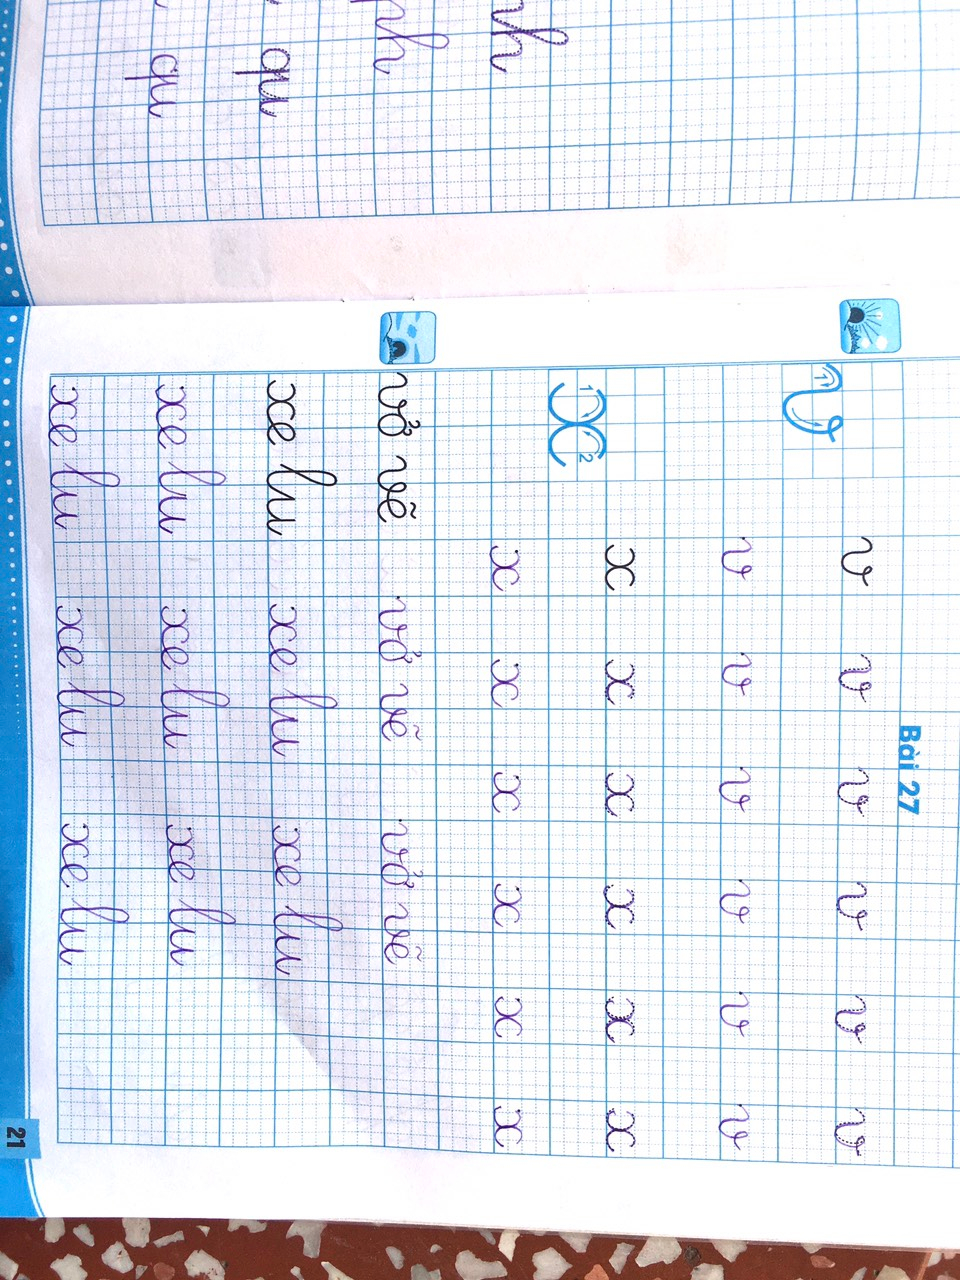 nh
nh
qu
qu
Bài 27
v v v v v v
v v v v v v
1 2
x x x x x x
x x x x x x
vở vẽ vở vẽ vở vẽ
xe lu xe lu xe lu
xe lu xe lu xe lu
xe lu xe lu xe lu
21